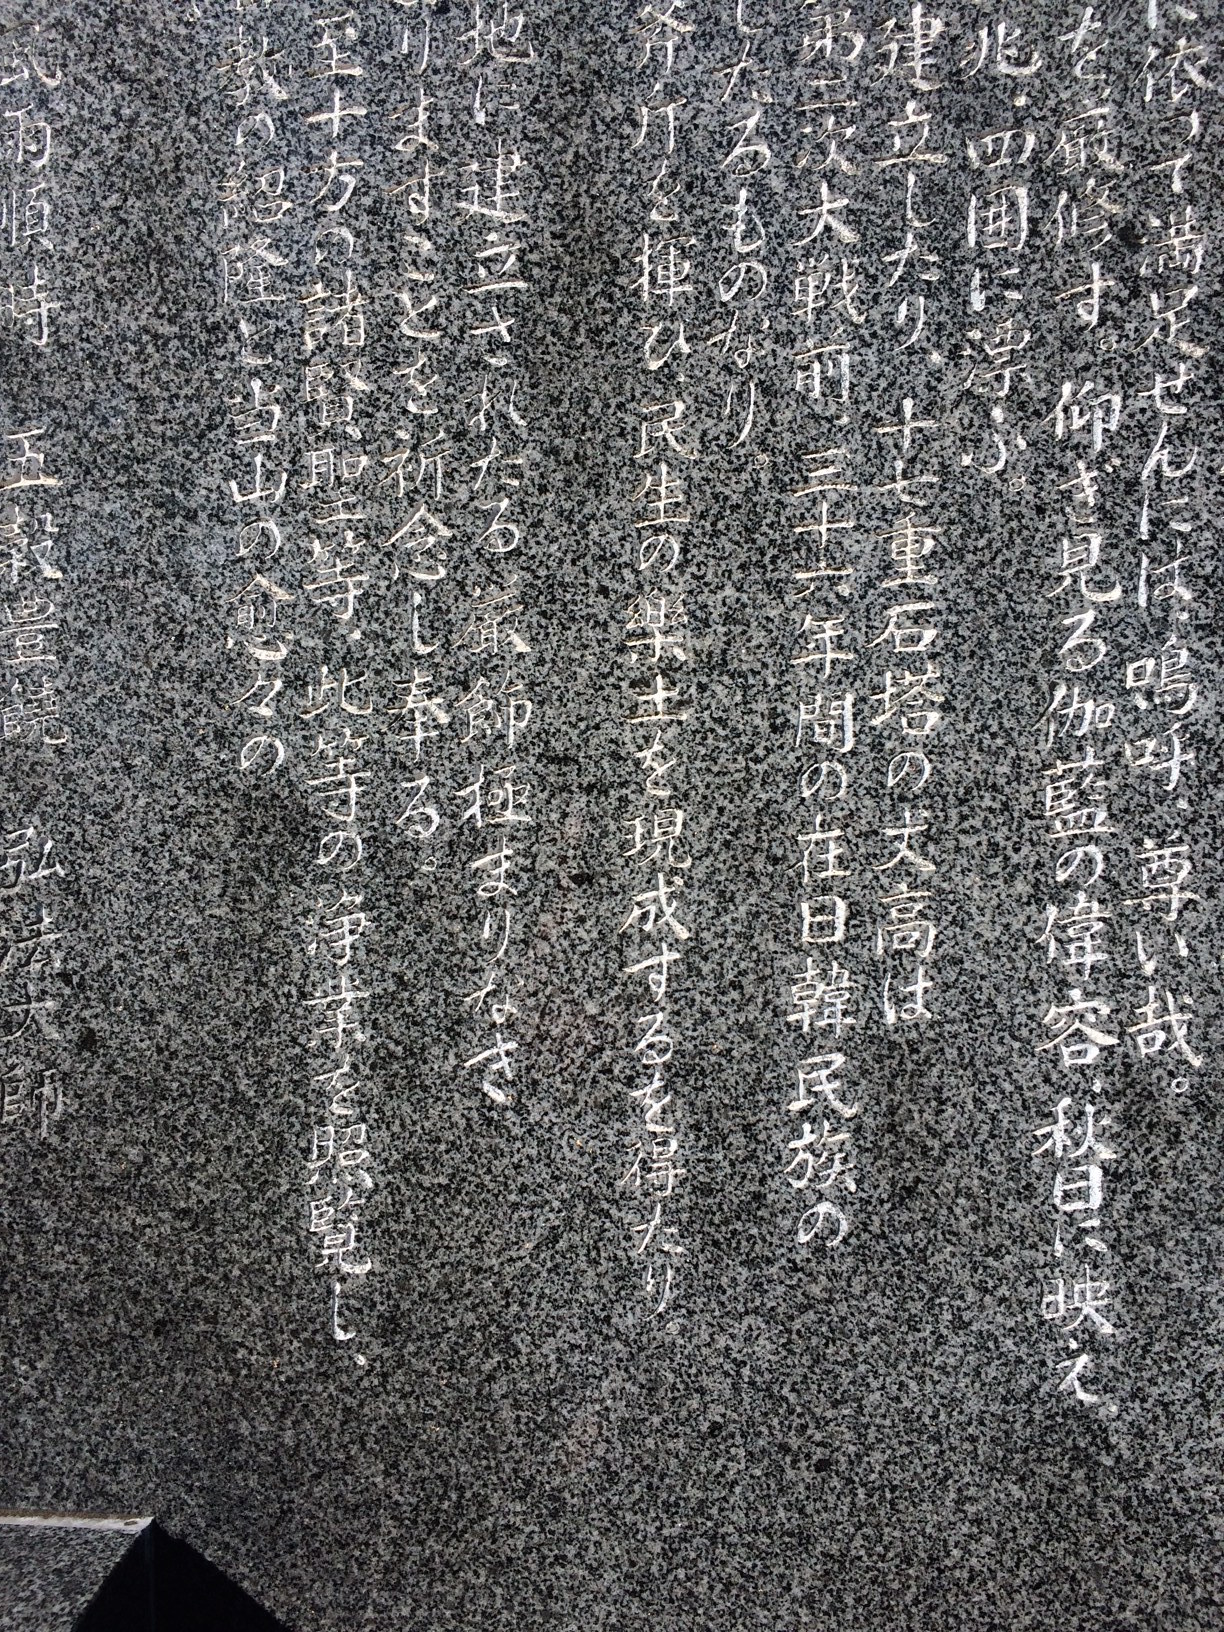 に依って満足せんには、嗚呼、尊い哉。
を厳修す。仰ぎ見る伽藍の偉容、秋日に映え、
兆、四囲に漂ふ。
建立したり、十七重石塔の丈高は
第二次大戦前、三十六年間の在日韓民族の
したるものなり。
斧斤を揮ひ、民生の樂土を現成するを得たり。
地に建立されたる厳節極まりなき
りますことを祈念し奉る。
至十方の諸賢聖等、此等の浄業を照覧し、
教の紹隆と当山の愈々の
風雨順時 五穀豊饒 弘法大師